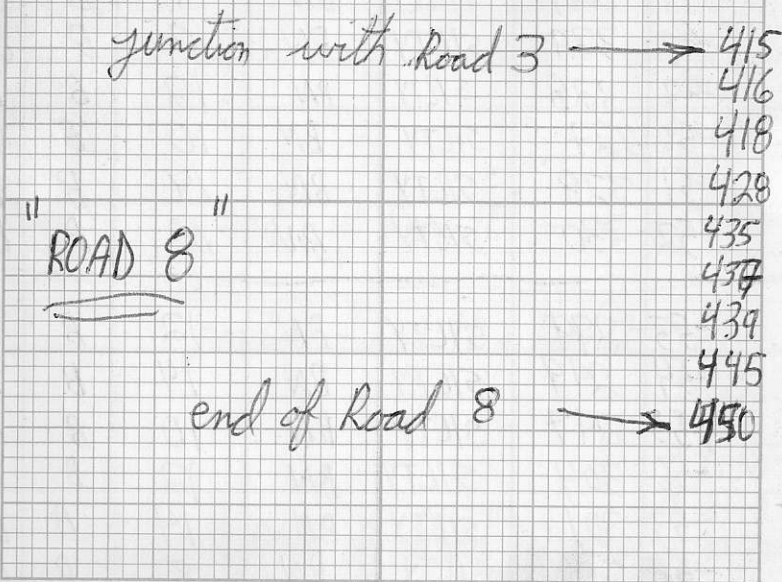 junction with Road 3 → 415
416
418
428
"ROAD 8"
435
437
439
445
end of Road 8 → 450